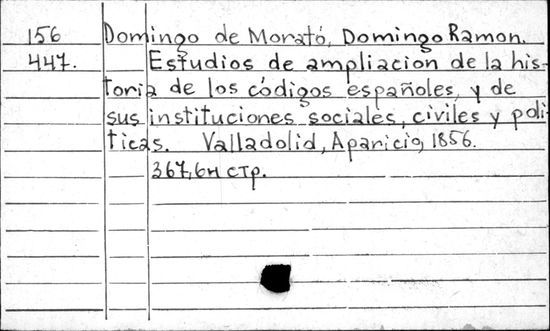 156 Domingo de Morató, Domingo Ramon.
447. Estudios de ampliacion de la his-
toria de los códigos españoles, y de
sus instituciones sociales, civiles y poli-
ticas. Valladolid, Aparicio, 1856.
367, 6н стр.